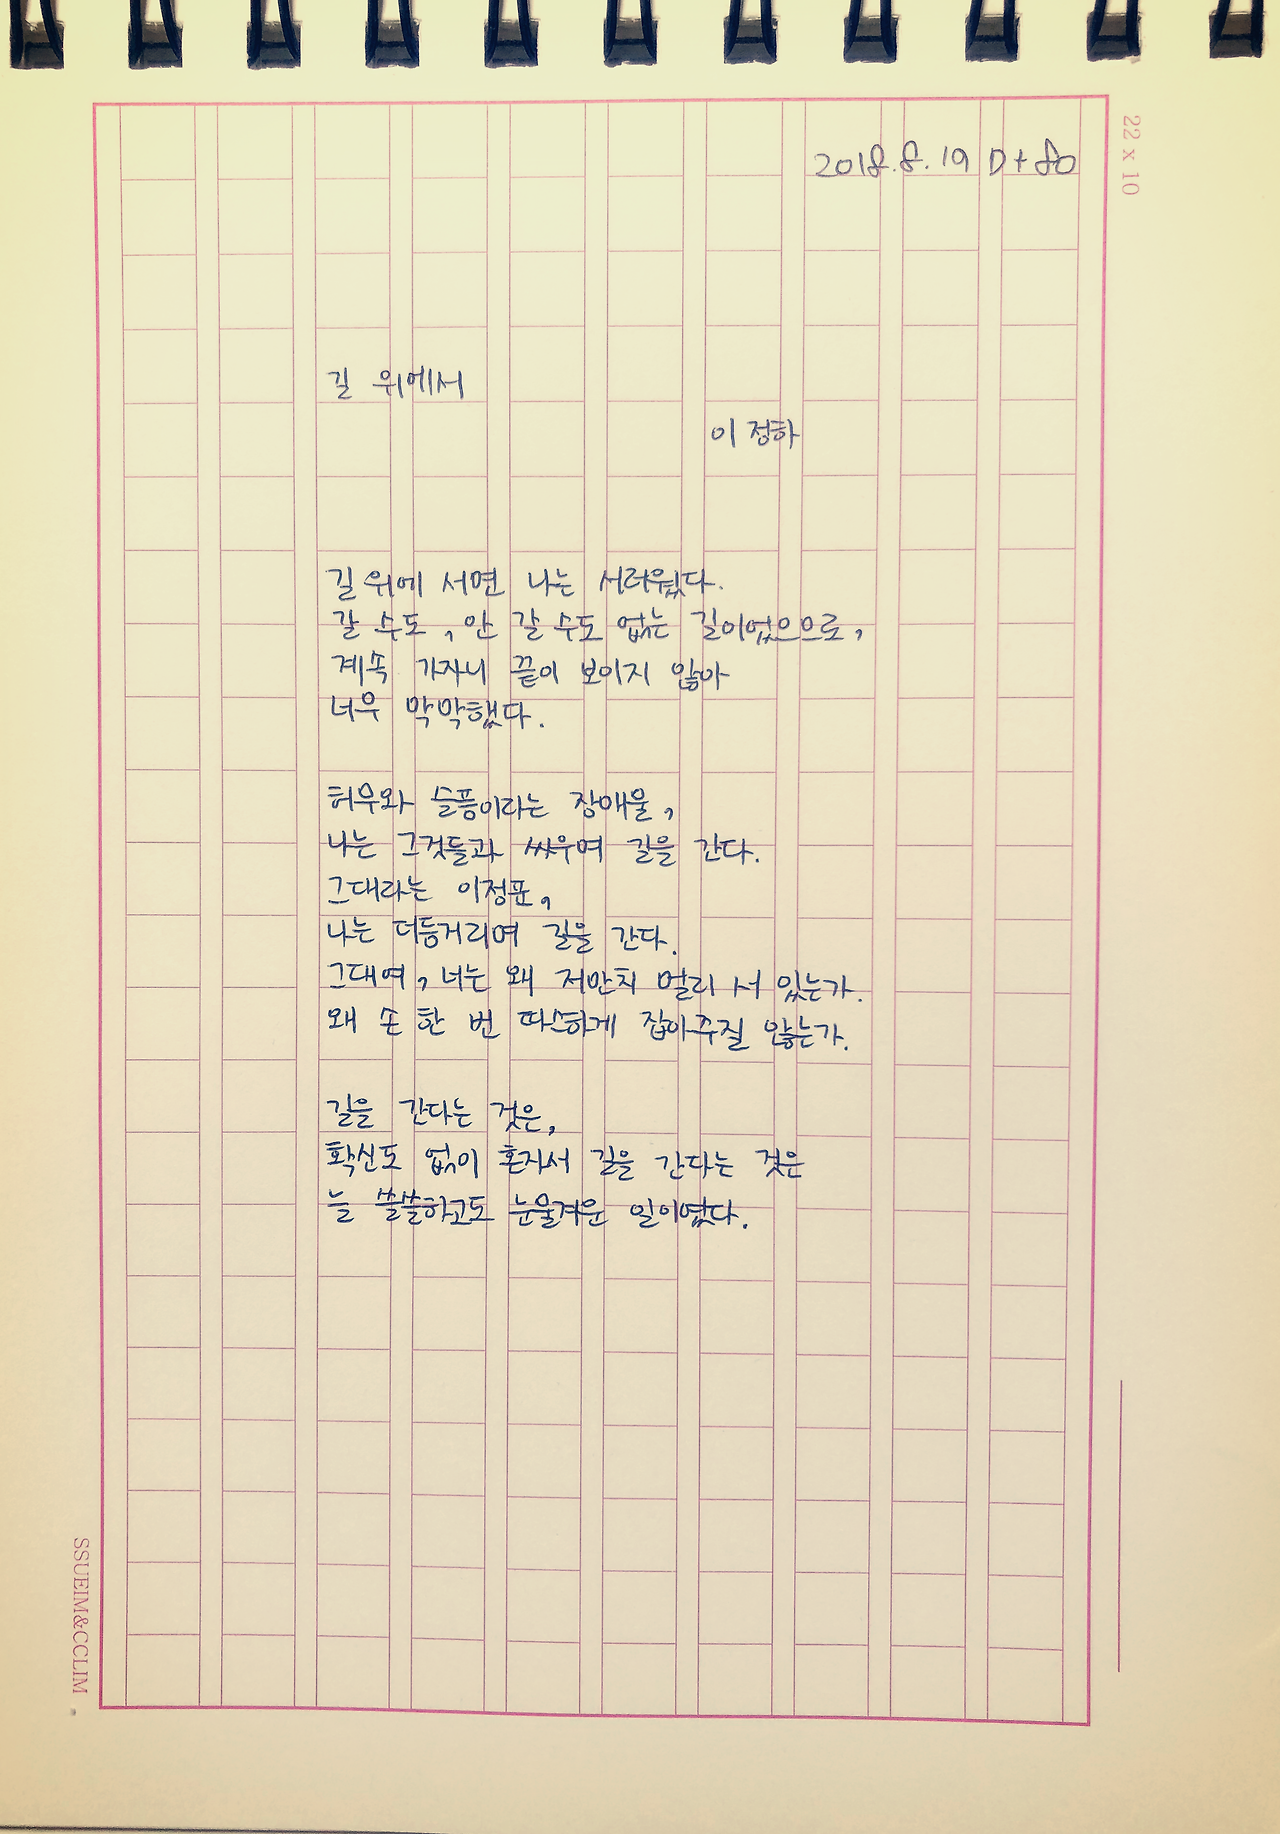 22 x 10
2018.8.19 D+80
길 위에서
이정하
길 위에 서면 나는 서러웠다.
갈 수도, 안 갈 수도 없는 길이었으므로,
계속 가자니 끝이 보이지 않아
너무 막막했다.
허무와 슬픔이라는 장애물,
나는 그것들과 싸우며 길을 간다.
그대라는 이정표,
나는 더듬거리며 길을 간다.
그대여, 너는 왜 저만치 멀리 서 있는가.
왜 손 한 번 따스하게 잡아주질 않는가.
길을 간다는 것은,
확신도 없이 혼자서 길을 간다는 것은
늘 쓸쓸하고도 눈물겨운 일이었다.
SSUEIM&CCLIM